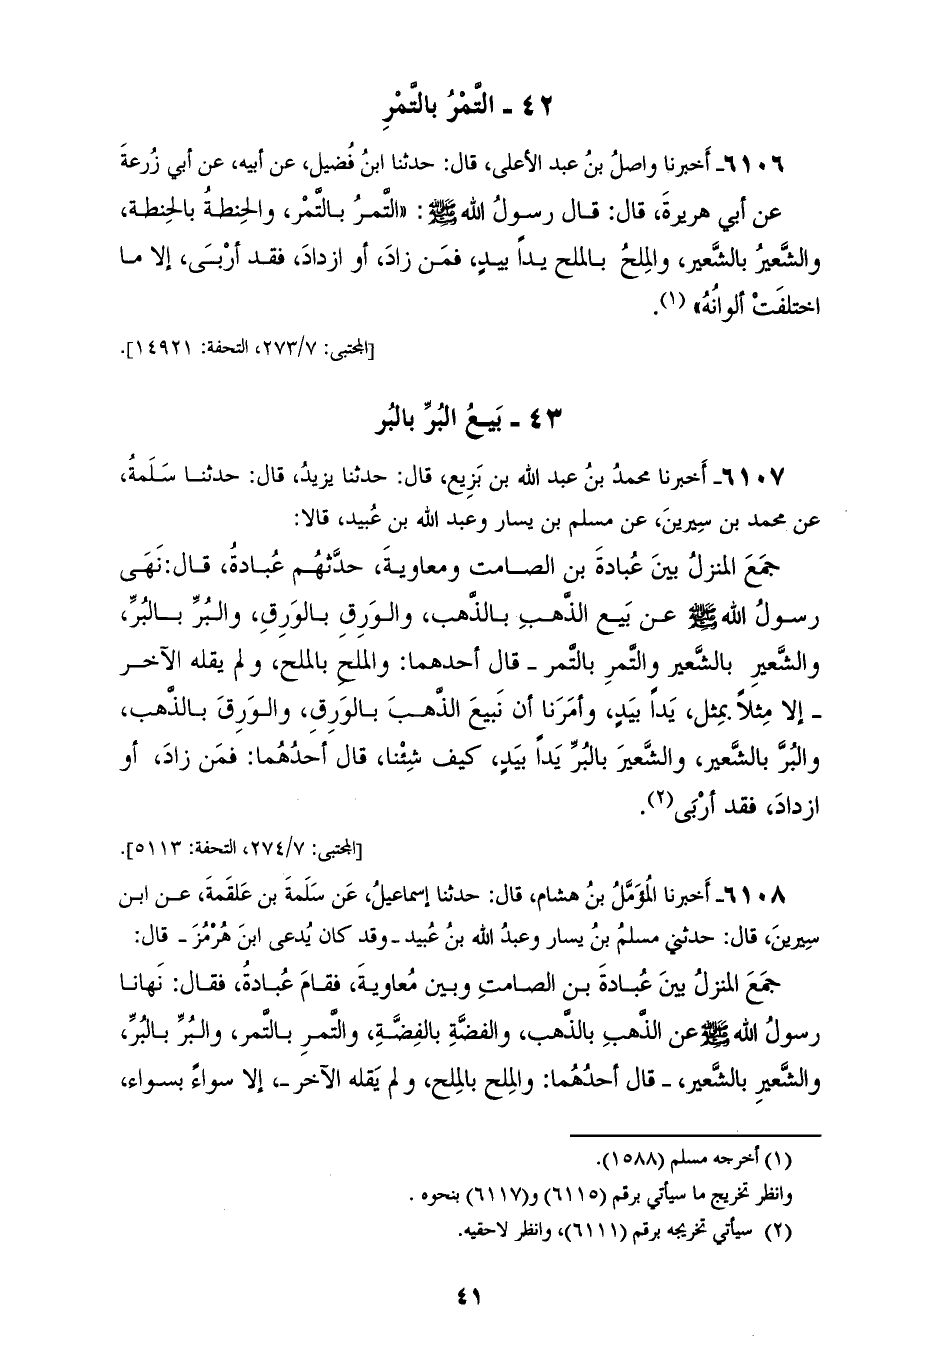 ٤٢ ـ التَّمْرُ بالتَّمْرِ
٦١٠٦ـ أَخبرنا واصلُ بنُ عبد الأعلى، قال: حدثنا ابنُ فُضيل، عن أبيه، عن أبي زُرعةَ
عن أبي هريرةَ، قال: قال رسولُ الله ﷺ: «التَّمرُ بالتَّمْر، والحِنطةُ بالحِنطة،
والشَّعيرُ بالشَّعير، والمِلحُ بالملح يداً بيدٍ، فمَن زادَ، أو ازدادَ، فقد أرْبَى، إلا ما
اختلفَتْ ألوانُهُ» (١).
[المجتبى: ٢٧٣/٧، التحفة: ١٤٩٢١].
٤٣ ـ بَيعُ البُرِّ بالبُر
٦١٠٧ـ أَخبرنا محمدُ بنُ عبد الله بن بَزِيع، قال: حدثنا يزيدُ، قال: حدثنا سَلَمةُ،
عن محمد بن سِيرينَ، عن مسلم بن يسار وعبد الله بن عُبيد، قالا:
جَمَعَ المنزلُ بينَ عُبادةَ بن الصامت ومعاويةَ، حدَّثهُم عُبادةُ، قال: نَهَى
رسولُ الله ﷺ عن بَيع الذَّهبِ بالذَّهب، والوَرِقِ بالوَرِقِ، والبُرِّ بالبُرِّ،
والشَّعيرِ بالشَّعير والتَّمرِ بالتَّمر ـ قال أحدهما: والملحِ بالملح، ولم يقله الآخر
ـ إلا مِثلاً بمِثل، يَداً بيَدٍ، وأمَرَنا أن نَبيعَ الذَّهبَ بالوَرِق، والوَرِقَ بالذَّهب،
والبُرَّ بالشَّعير، والشَّعيرَ بالبُرِّ يَداً بيَدٍ، كيف شِئْنا، قال أحدُهُما: فمَن زادَ، أو
ازدادَ، فقد أرْبَى(٢).
[المجتبى: ٢٧٤/٧، التحفة: ٥١١٣].
٦١٠٨ـ أَخبرنا المُؤمَّلُ بنُ هشام، قال: حدثنا إسماعيلُ، عَن سَلَمةَ بن عَلقمةَ، عن ابن
سِيرينَ، قال: حدثني مسلمُ بنُ يسار وعبدُ الله بنُ عُبيد ـ وقد كان يُدعى ابنَ هُرْمُزَ ـ قال:
جَمَعَ المنزلُ بينَ عُبادةَ بن الصامتِ وبين مُعاويةَ، فقامَ عُبادةُ، فقال: نَهانا
رسولُ الله ﷺ عن الذَّهبِ بالذَّهب، والفضَّةِ بالفِضَّةِ، والتَّمرِ بالتَّمر، والبُرِّ بالبُرِّ،
والشَّعيرِ بالشَّعير، ـ قال أحدُهُما: والمِلح بالمِلح، ولم يَقله الآخر ـ، إلا سواءً بسواء،
(١) أخرجه مسلم (١٥٨٨).
وانظر تخريج ما سيأتي برقم (٦١١٥) و(٦١١٧) بنحوه .
(٢) سيأتي تخريجه برقم (٦١١١)، وانظر لاحقيه.
٤١